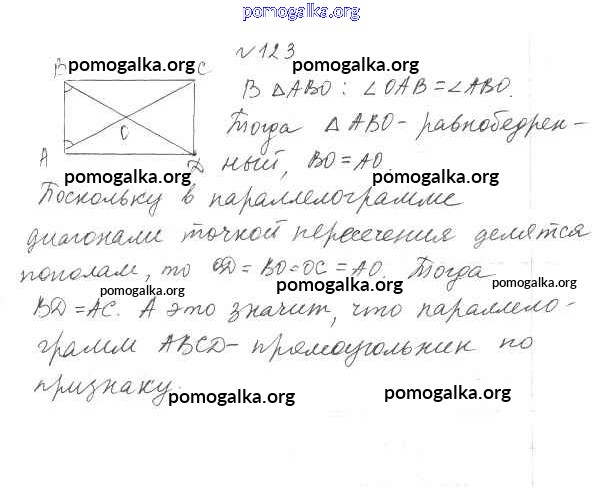 pomogalka.org
№123
B C
pomogalka.org pomogalka.org
В △ABO: ∠OAB = ∠ABO.
O
Тогда △ABO - равнобедрен-
A D
ный, BO = AO
pomogalka.org pomogalka.org
Поскольку в параллелограмме
диагонали точкой пересечения делятся
пополам, то OD = BO = OC = AO. Тогда
pomogalka.org pomogalka.org pomogalka.org
BD = AC. А это значит, что параллело-
грамм ABCD - прямоугольник по
признаку.
pomogalka.org pomogalka.org